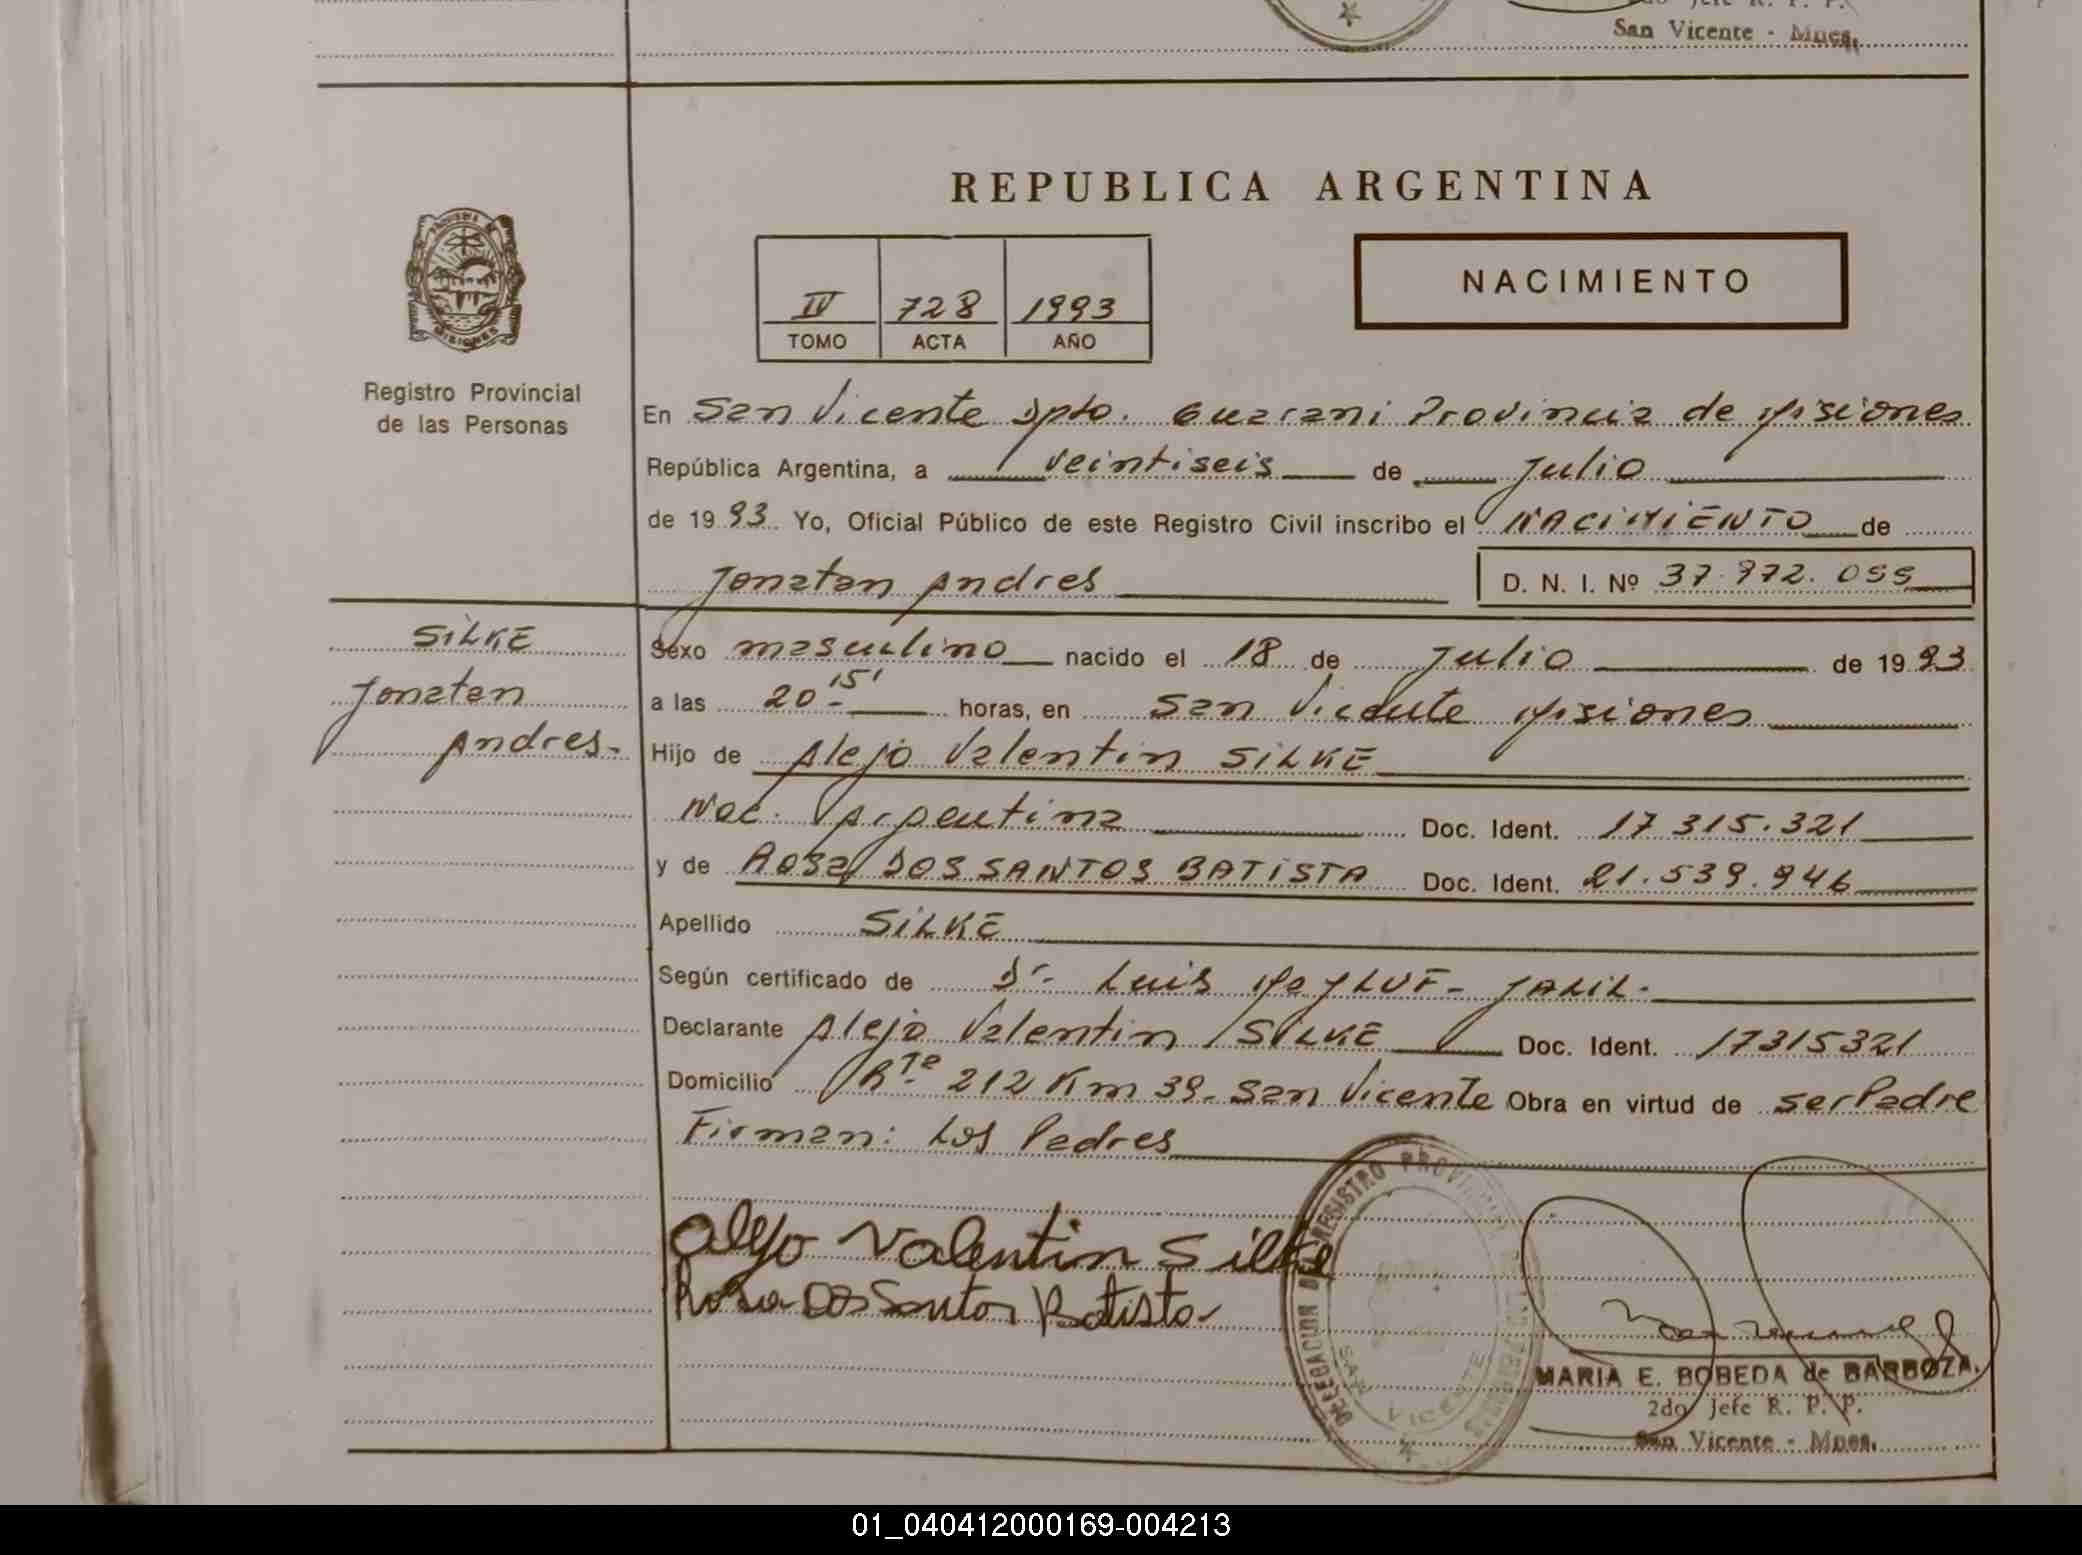 2do Jefe R. P. P.
San Vicente - Mnes.
REPUBLICA ARGENTINA
NACIMIENTO
IV 728 1993
TOMO ACTA AÑO
MISIONES
Registro Provincial
de las Personas
En San Vicente Dpto. Guarani Provincia de Misiones
República Argentina, a veintiseis de Julio
de 1993 Yo, Oficial Público de este Registro Civil inscribo el NACIMIENTO de
Jonatan Andres D. N. I. Nº 37.972.055
SILKE
Jonatan
Andres.
Sexo masculino nacido el 18 de Julio de 1993
a las 20-15' horas, en San Vicente Misiones
Hijo de Alejo Valentin SILKE
Nac. Argentina Doc. Ident. 17 315.321
y de Rosa DOS SANTOS BATISTA Doc. Ident. 21.539.946
Apellido SILKE
Según certificado de Dr. Luis JALIL.
Declarante Alejo Valentin SILKE Doc. Ident. 17315321
Domicilio Rta 212 Km 39- San Vicente Obra en virtud de ser Padre
Firman: Los Padres
Alejo Valentin Silke
Rosa Dos Santos Batista
DELEGACION DEL REGISTRO PROVINCIAL DE LAS PERSONAS
SAN VICENTE
MARIA E. BOBEDA de BARBOZA.
2do Jefe R. P. P.
San Vicente - Mnes.
01_040412000169-004213